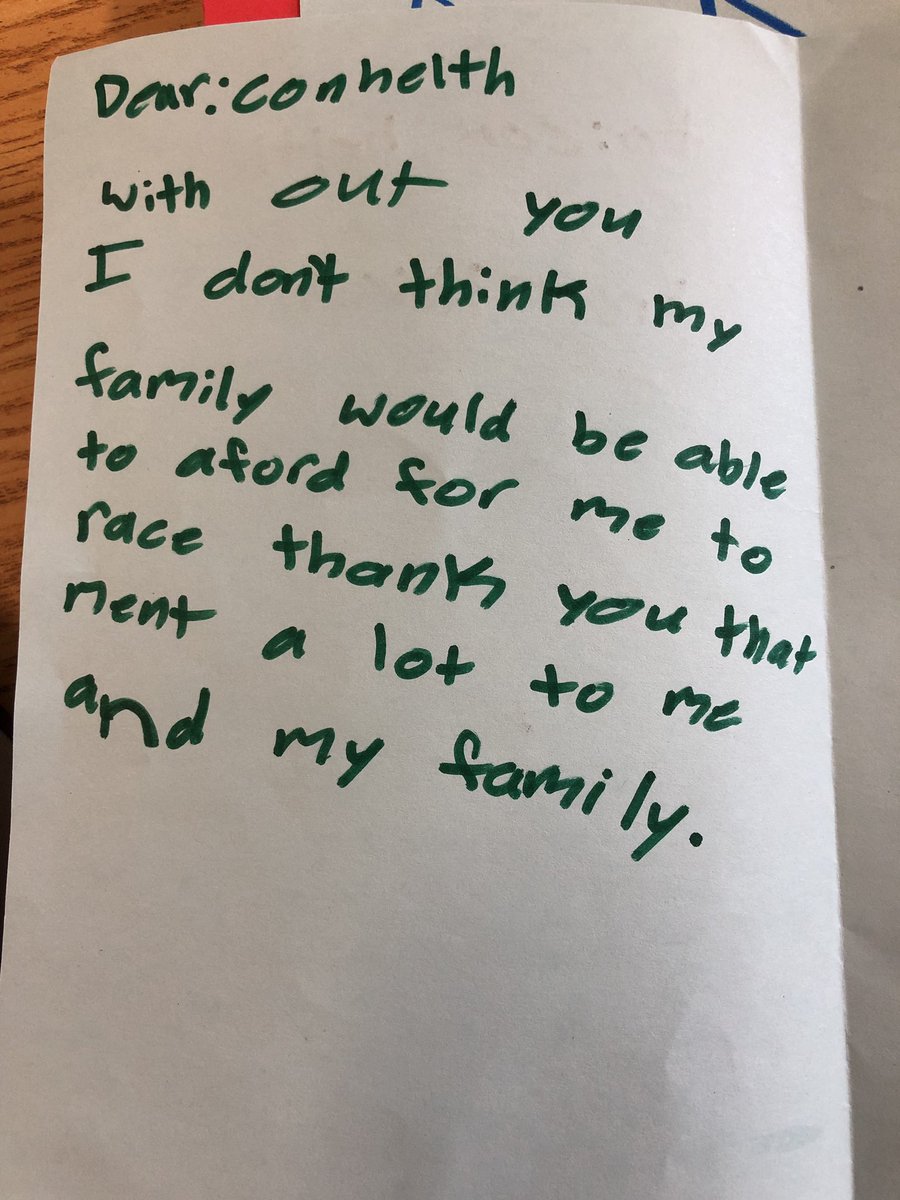 Dear: conhelth
with out you
I don't think my
family would be able
to aford for me to
race thank you that
ment a lot to me
and my family.